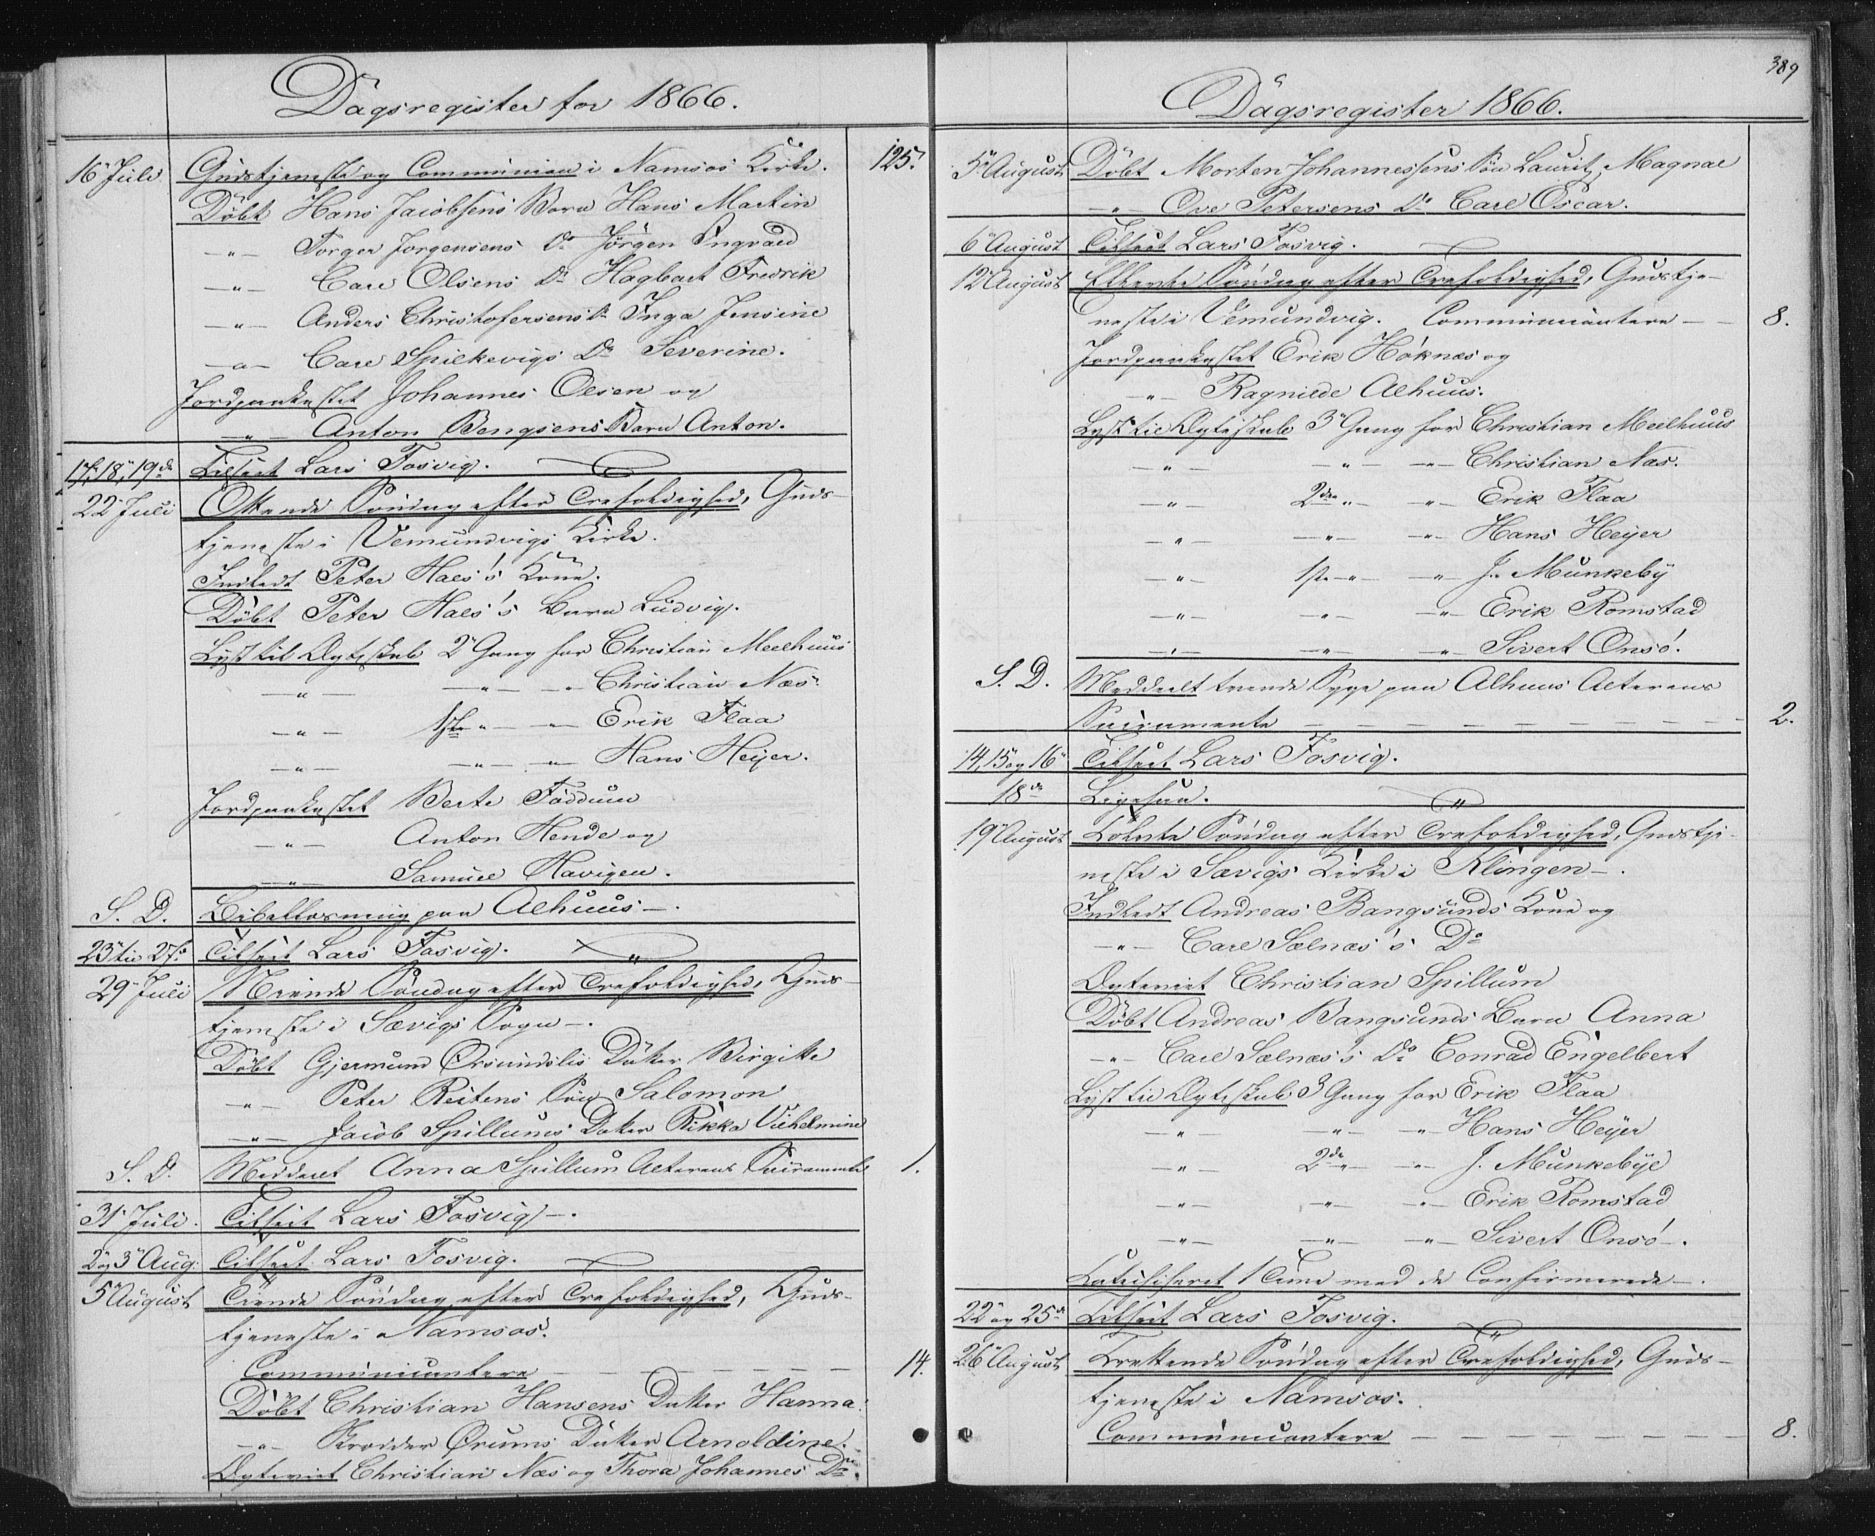 Dagsregister for 1866.
16 Juli Gudstjeneste og Communion i Namsos Kirke. 125.
Döbt Hans Jacobsens Barn Hans Martin
-"- Torger Jorgensens Do Jörgen Ingvald
-"- Carl Olsens Do Hagbart Fredrik
-"- Anders Christofersens Do Inga Jensine
-"- Carl Spilkevigs Do Severine.
Jordpaakastet Johannes Olsen og
-"- Anton Bengsens Barn Anton.
17, 18, 19de Tilseet Lars Fosvig.
22 Juli Ottende Söndag efter Trefoldighed, Guds-
tjeneste i Vemundvigs Kirke.
Indledt Peter Hals's Kone.
Döbt Peter Hals's Barn Ludvig.
Lyst til Ægteskab 2 Gang for Christian Meelhuus
-"- -"- -"- Christian Næs.
-"- 1ste -"- -"- Erik Flaa
-"- -"- -"- Hans Heijer.
Jordpaakastet Berte Föddum
-"- Anton Hende og
-"- Samuel Havigen.
S. D. Bibellæsning paa Alhuus -.
23 til 27 Tilseet Lars Fosvig.
29 Juli Niende Söndag efter Trefoldighed, Guds-
tjeneste i Sævigs Sogn -.
Döbt Gjermund Örsundslis Datter Birgitte
-"- Peter Reitens Sön Salomon
-"- Jacob Spillums Datter Rikka Vilhelmine
S. D. Meddeelt Anna Spillum Alterens Sacramente 1.
31 Juli. Tilseet Lars Fosvig -.
2 og 3 Aug. Tilseet Lars Fosvig.
5 August Tiende Söndag efter Trefoldighed, Guds-
tjeneste i Namsos.
Communicantere - - - - 14.
Döbt Christian Hansens Datter Hanna.
-"- Ørums Datter Arnoldine.
Ægteviet Christian Næs og Thora Johannes Dr.
389
Dagsregister 1866.
5 August Döbt Morten Johannessens Sön Lauritz Magnal
-"- Ove Petersens Do Carl Oscar.
6 August Tilseet Lars Fosvig.
12 August Ellevte Söndag efter Trefoldighed, Gudstje-
neste i Vemundvig. Communicantere - - 8.
Jordpaakastet Erik Höknæs og
-"- Ragnilde Alhuus.
Lyst til Ægteskab 3 Gang for Christian Meelhuus
-"- -"- -"- Christian Næs.
-"- 2den -"- -"- Erik Flaa
-"- -"- -"- Hans Heijer
-"- 1ste -"- -"- J. Munkeby
-"- -"- -"- Erik Romstad
-"- -"- -"- Sivert Onsö.
S. D. Meddeelt tvende Syge paa Alhuus Alterens
Sacramente - - - - - - 2.
14, 15 og 16 Tilseet Lars Fosvig.
18de Ligesaa.
19 August Tolvte Söndag efter Trefoldighed, Gudstje-
neste i Sævigs Kirke i Klingen -.
Indledt Andreas Bangsunds Kone og
-"- Carl Sælnæs's Do
Ægteviet Christian Spillum
Döbt Andreas Bangsunds Barn Anna
-"- Carl Sælnæs's Do Conrad Engelbert
Lyst til Ægteskab 3 Gang for Erik Flaa
-"- -"- -"- Hans Heijer
-"- 2de -"- -"- J. Munkebye
-"- -"- -"- Erik Romstad
-"- -"- -"- Sivert Onsö -.
Catechiseret 1 Time med de Confirmerede -.
22 og 25de Tilseet Lars Fosvig.
26 August Trettende Söndag efter Trefoldighed, Guds-
tjeneste i Namsos.
Communicantere - - - - - - 8.